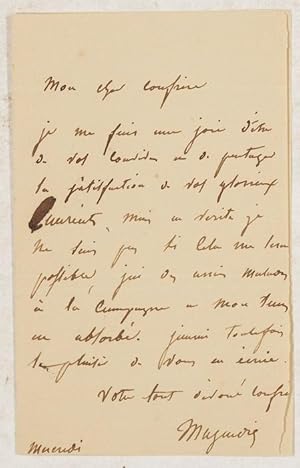 Mon cher confrère
je me fais une joie d'être
de vos convives et de partager
la satisfaction de vos glorieux
mais en vérité je
ne sais pas si cela me sera
possible, j'ai des amis malades
à la campagne et mon temps
en absorbé. j'aurai toutefois
le plaisir de vous en écrire.
Votre tout dévoué confre
Magendie
Mercredi